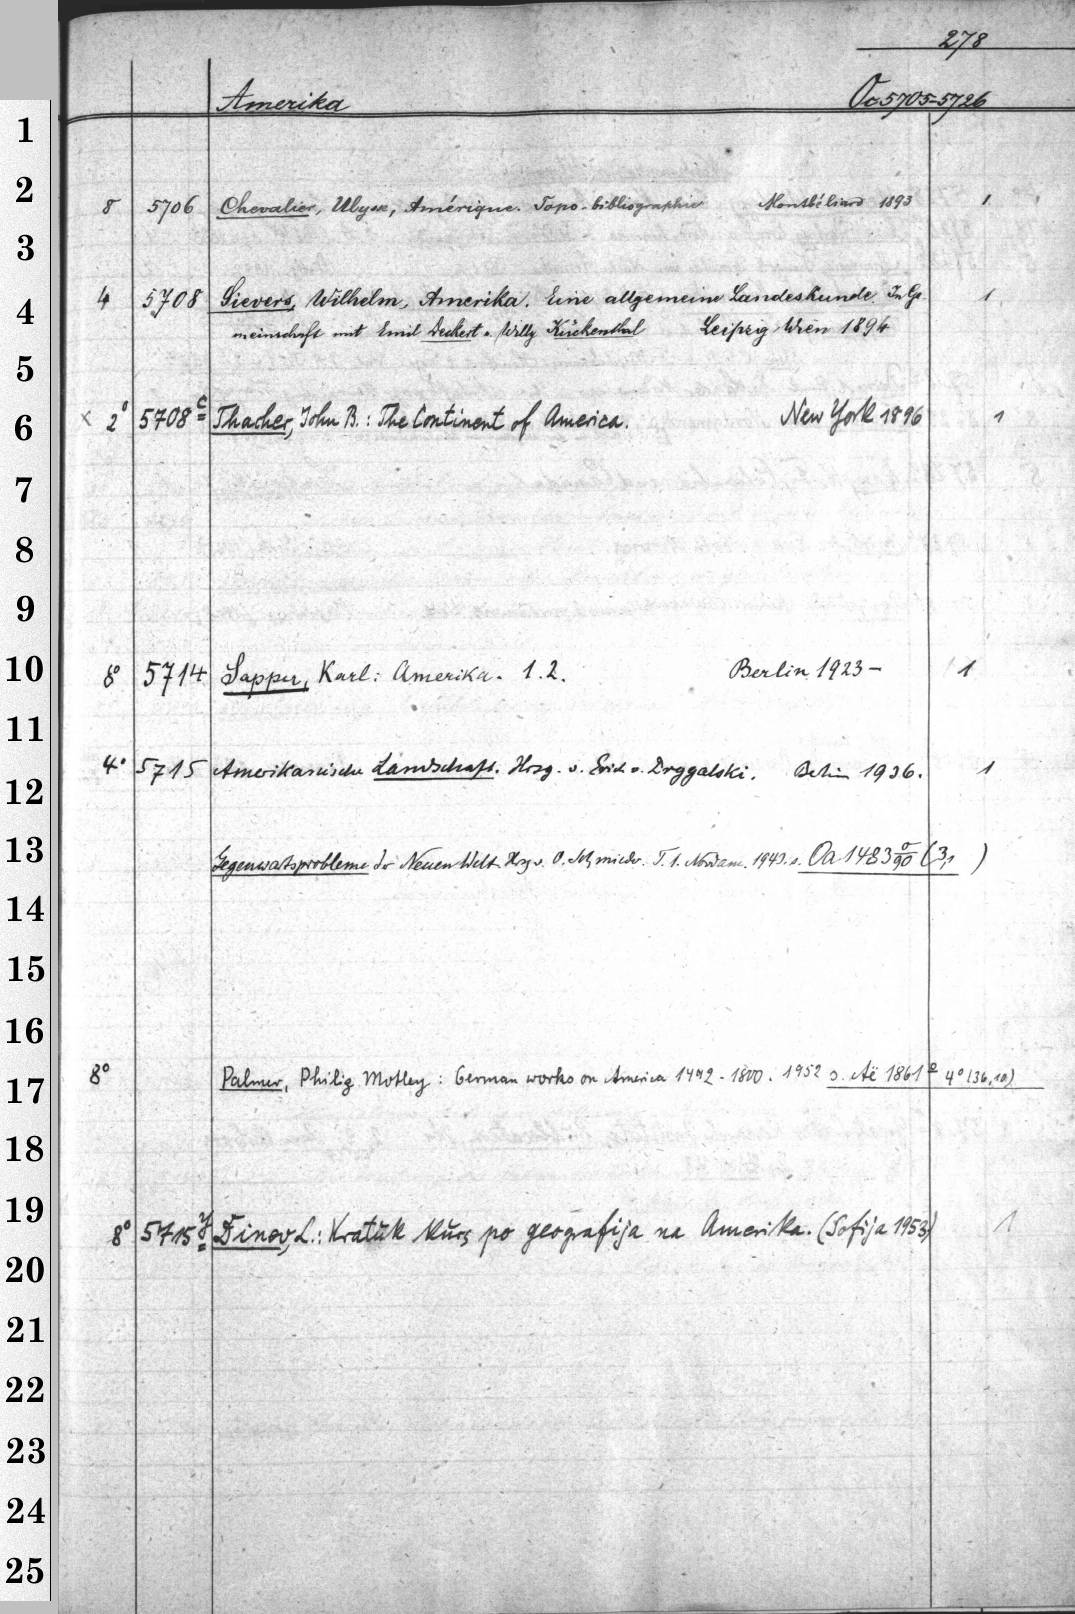 278
Amerika Oc 5705-5726
1
2
8 5706 Chevalier, Ulysse, Amérique. Topo-bibliographie Montbéliard 1893 1
3
4 5708 Sievers, Wilhelm, Amerika. Eine allgemeine Landeskunde. In Ge- 1
4
meinschaft mit Emil Deckert u. Willy Kückenthal Leipzig Wien 1894
5
6
× 2° 5708 c Thacher, John B.: The Continent of America. New York 1896 1
7
8
9
10
8° 5714 Sapper, Karl: Amerika. 1.2. Berlin 1923- 1
11
4° 5715 Amerikanische Landschaft. Hrsg. v. Erich v. Drygalski. Berlin 1936. 1
12
13
Gegenwartsprobleme der Neuen Welt. Hrsg v. O. Schmieder. T. 1. Nordam. 1943. s. Oa 1483 o/90 (3,1 )
14
15
16
17
8° Palmer, Philip Motley: German works on America 1492-1800. 1952 s. Aë 1861 e 4° (36,10)
18
19
8° 5715 y Dinev, L.: Kratŭk kurs po geografija na Amerika. (Sofija 1953) 1
20
21
22
23
24
25